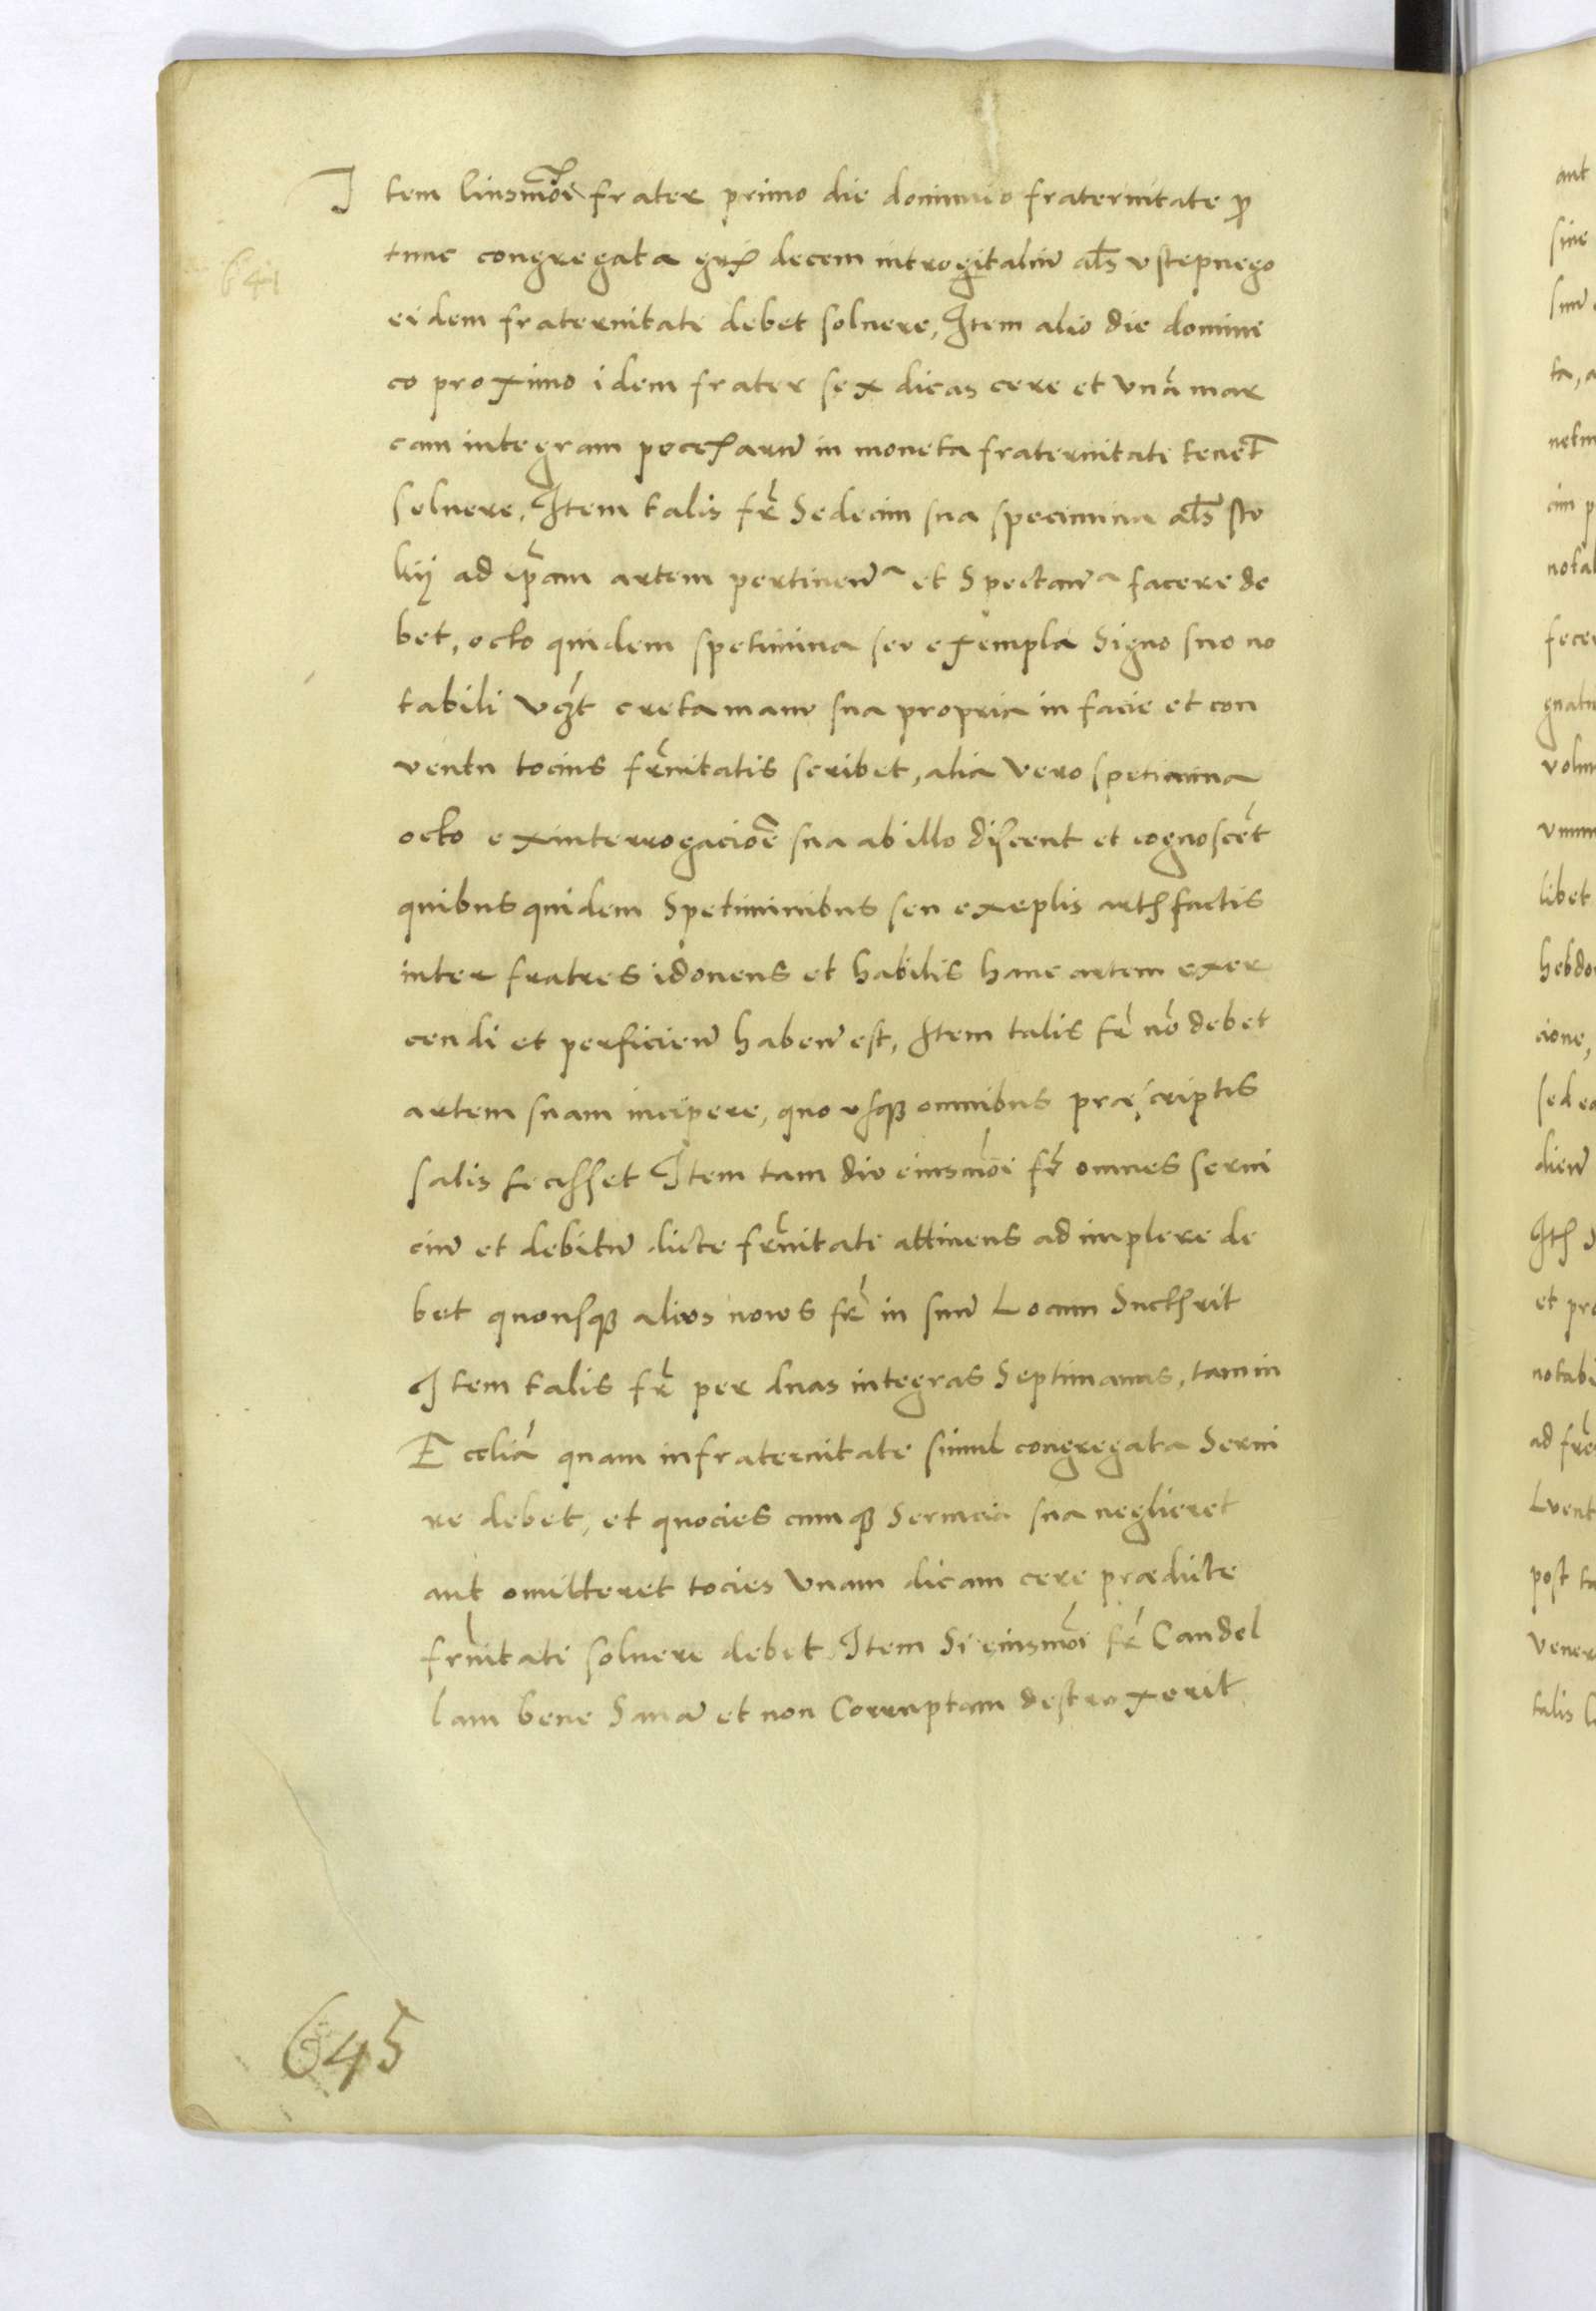 Item huiusmōi frater primo die dominico fraternitate ꝓ
641
tunc congregata gr̃ decem introgitalium̄ al̄s vstepnego
eidem fraternitati debet soluere, Item alio die domini
co proximo idem frater sex dicas cere et vnā mar
cam integram pecc̃harum̄ in moneta fraternitati tenet̄
soluere, Item talis fr̄ Sedecim sua specimina al̄s stv
kij ad ip̄am artem pertinen̄ᵃ et Spectan̄ᵃ facere de
bet, octo quidem spetimina sev exempla Signo suo no
tabili vcꝫt creta manv sua propria in facie et con
ventu tocius fr̄nitatis scribet, alia vero spetimina
octo ex interrogaciōe sua ab illo discent et cognoscēt
quibus quidem Spetiminibus seu exēplis arth̃ factis
inter fratres idoneus et habilis hanc artem exer
cendi et perficien̄ haben̄ est, Item talis fr̄ nō debet
artem suam incipere, quo vsqꝫ omnibus præscriptis
satis fecisset Item tam div eiusmōi fr̄ omnes serui
ciu̅ et debitu̅ dicte fr̄nitati attinens adimplere de
bet quousqꝫ alivs novvs fr̄ in suu̅ Locum Succ̃rit
Item talis fr̄ per duas integras Septimanas, tam in
Eccliā quam in fraternitate simul congregata Serui
re debet, et quocies cumqꝫ Seruicia sua neglieret
aut omitteret tocies vnam dicam cere prædicte
fr̄nitati soluere debet Item Si eiusmōi fr̄ Candel
lam bene Sanā et non Corruptam destruxerit
645
aut
sine
suu̅
ta, a
netur
cim p
notab
fecer
gnatu
volun
vnum
libet
hebdo
cione,
sed ea
dien̄
Ith̃ d
et pro
notabi
ad fr̄
Lvent
post ta
vener
talis